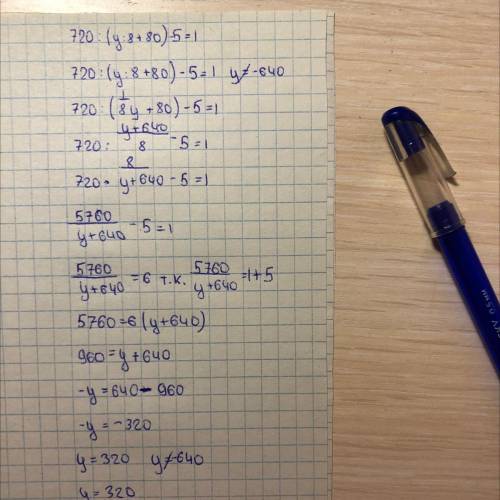 720:(y:8+80)-5=1
720:(y:8+80)-5=1 y≠-640
720:(1/8y+80)-5=1
720: (y+640)/8 -5=1
720· 8/(y+640) -5=1
5760/(y+640) -5=1
5760/(y+640) =6 т.к. 5760/(y+640) =1+5
5760=6(y+640)
960=y+640
-y=640-960
-y=-320
y=320 y≠-640
y=320
0.5мм